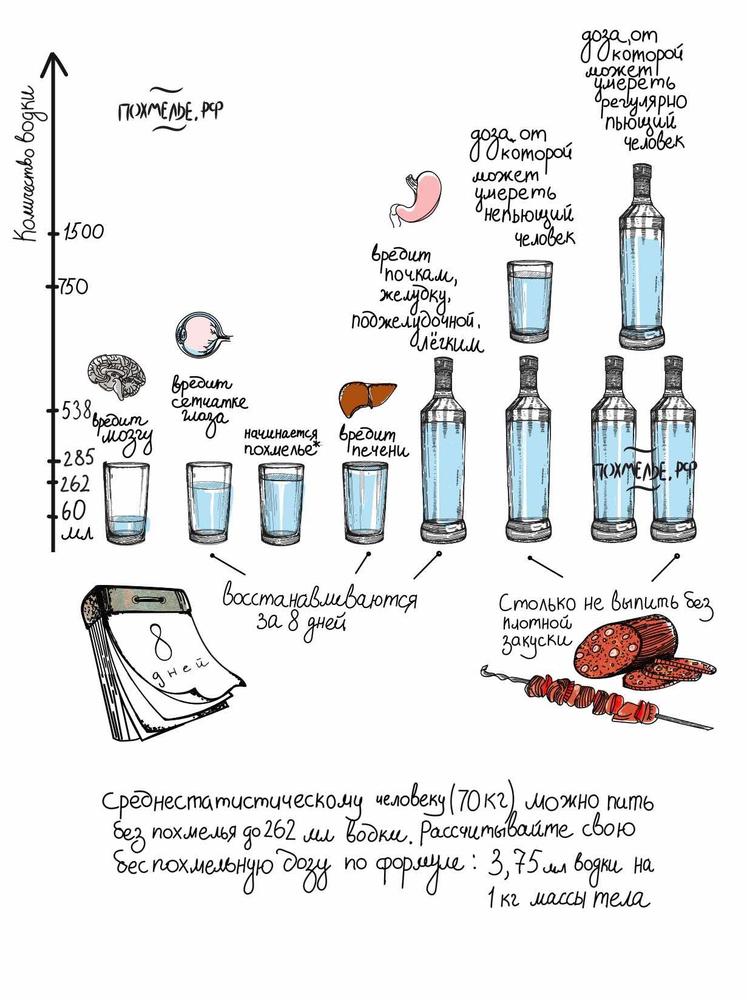 доза, от
которой
может
умереть
регулярно
пьющий
человек
Количество водки
ПОХМЕЛЬЕ.РФ
доза, от
которой
может
умереть
непьющий
человек
1500
750
538
285
262
60
мл
вредит
мозгу
вредит
сетчатке
глаза
начинается
похмелье*
вредит
печени
вредит
почкам,
желудку,
поджелудочной,
лёгким
ПОХМЕЛЬЕ.РФ
восстанавливаются
за 8 дней
Столько не выпить без
плотной
закуски
8
дней
Среднестатистическому человеку (70 кг) можно пить
без похмелья до 262 мл водки. Рассчитывайте свою
беспохмельную дозу по формуле: 3,75 мл водки на
1 кг массы тела